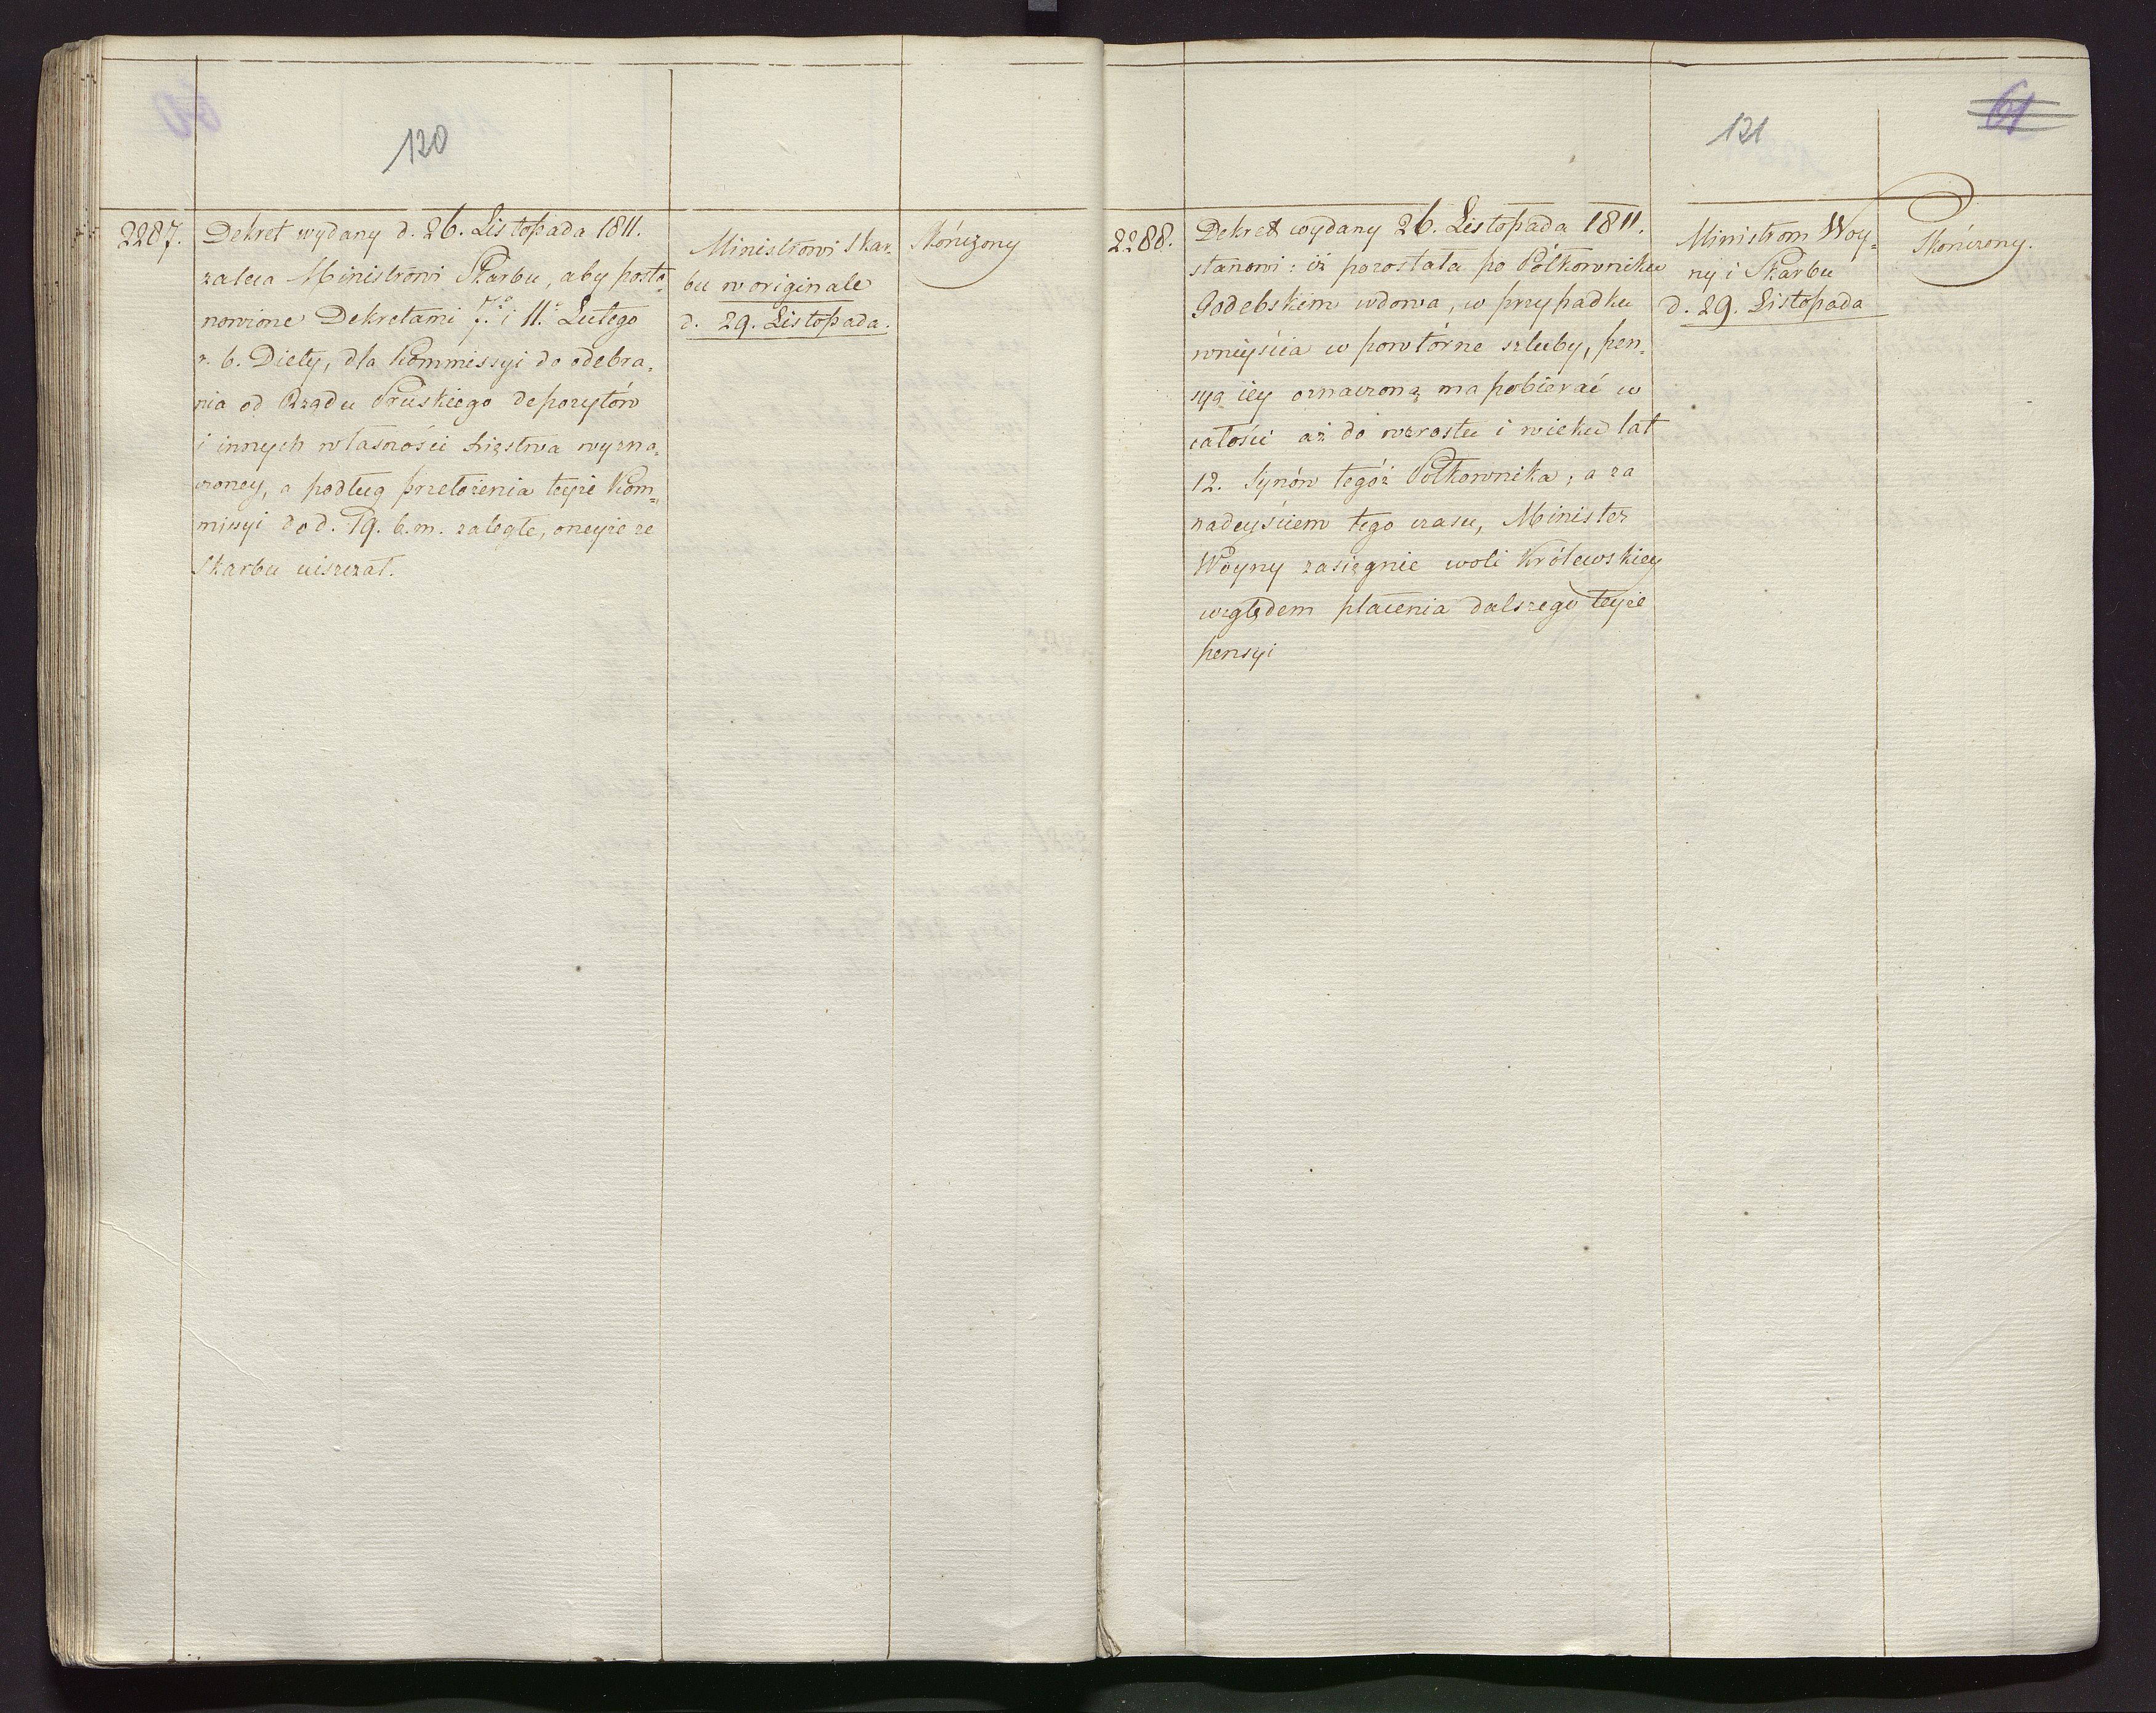 120
2287.
Dekret wydany d. 26. Listopada 1811.
zaleca Ministrowi Skarbu, aby posta-
nowione Dekretami 7.º i 11.º Lutego
r. b. Diety, dla Kommissyi do odebra-
nia od Rządu Pruskiego depozytów
i innych własności Xięstwa wyzna-
czoney, a podług przełożenia teyże Kom-
missyi do d. 19. b. m. zaległe, oneyże ze
Skarbu uiszczał.
Ministrowi Skar-
bu w originale
d. 29. Listopada.
Skończony
121
61
2288.
Dekret wydany 26. Listopada 1811.
stanowi: iż pozostała po Półkowniku
Godebskim wdowa, w przypadku
wniyścia w powtórne szluby, pen-
syą iéy oznaczoną ma pobierać w
całości aż do wzrostu i wieku lat
12. Synów tegóż Półkownika; a za
nadeyściem tego czasu, Minister
Woyny zasięgnie woli Królewskiey
względem płacenia dalszego teyże
pensyi
Ministrom Woy-
ny i Skarbu
d. 29. Listopada
Skończony.